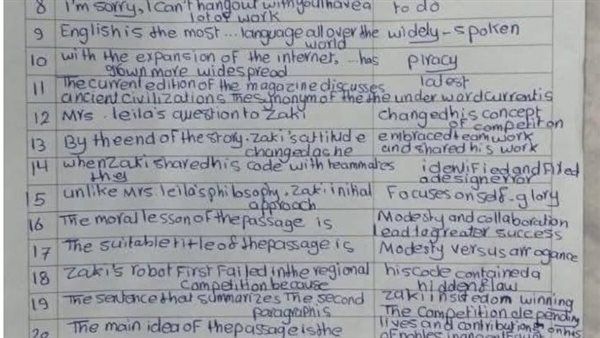 8 I'm sorry, I can't hangout with you I have a to do
lot of work
9 English is the most ... language all over the widely - spoken
world
10 with the expansion of the internet, ... has piracy
grown more widespread
11 The current edition of the magazine discusses latest
ancient civilizations The synonym of the the under word current is
12 Mrs. leila's question to Zaki changed his concept
of competiton
13 By the end of the story, Zaki's attitude embraced team work
changed as he and shared his work
14 when Zaki shared his code with teammates identified and fixed
they a design error
15 unlike Mrs. leila's philosophy, Zaki initial Focuses on self-glory
approach
16 The moral lesson of the passage is Modesty and collaboration
lead to greater success
17 The suitable title of the passage is Modesty versus arrogance
18 Zaki's robot First Failed in the regional his code contained a
competition because hidden flaw
19 The sentence that summarizes The second Zaki insisted om winning
paragraph is The competition depending
20 The main idea of the passage is the lives and contributions